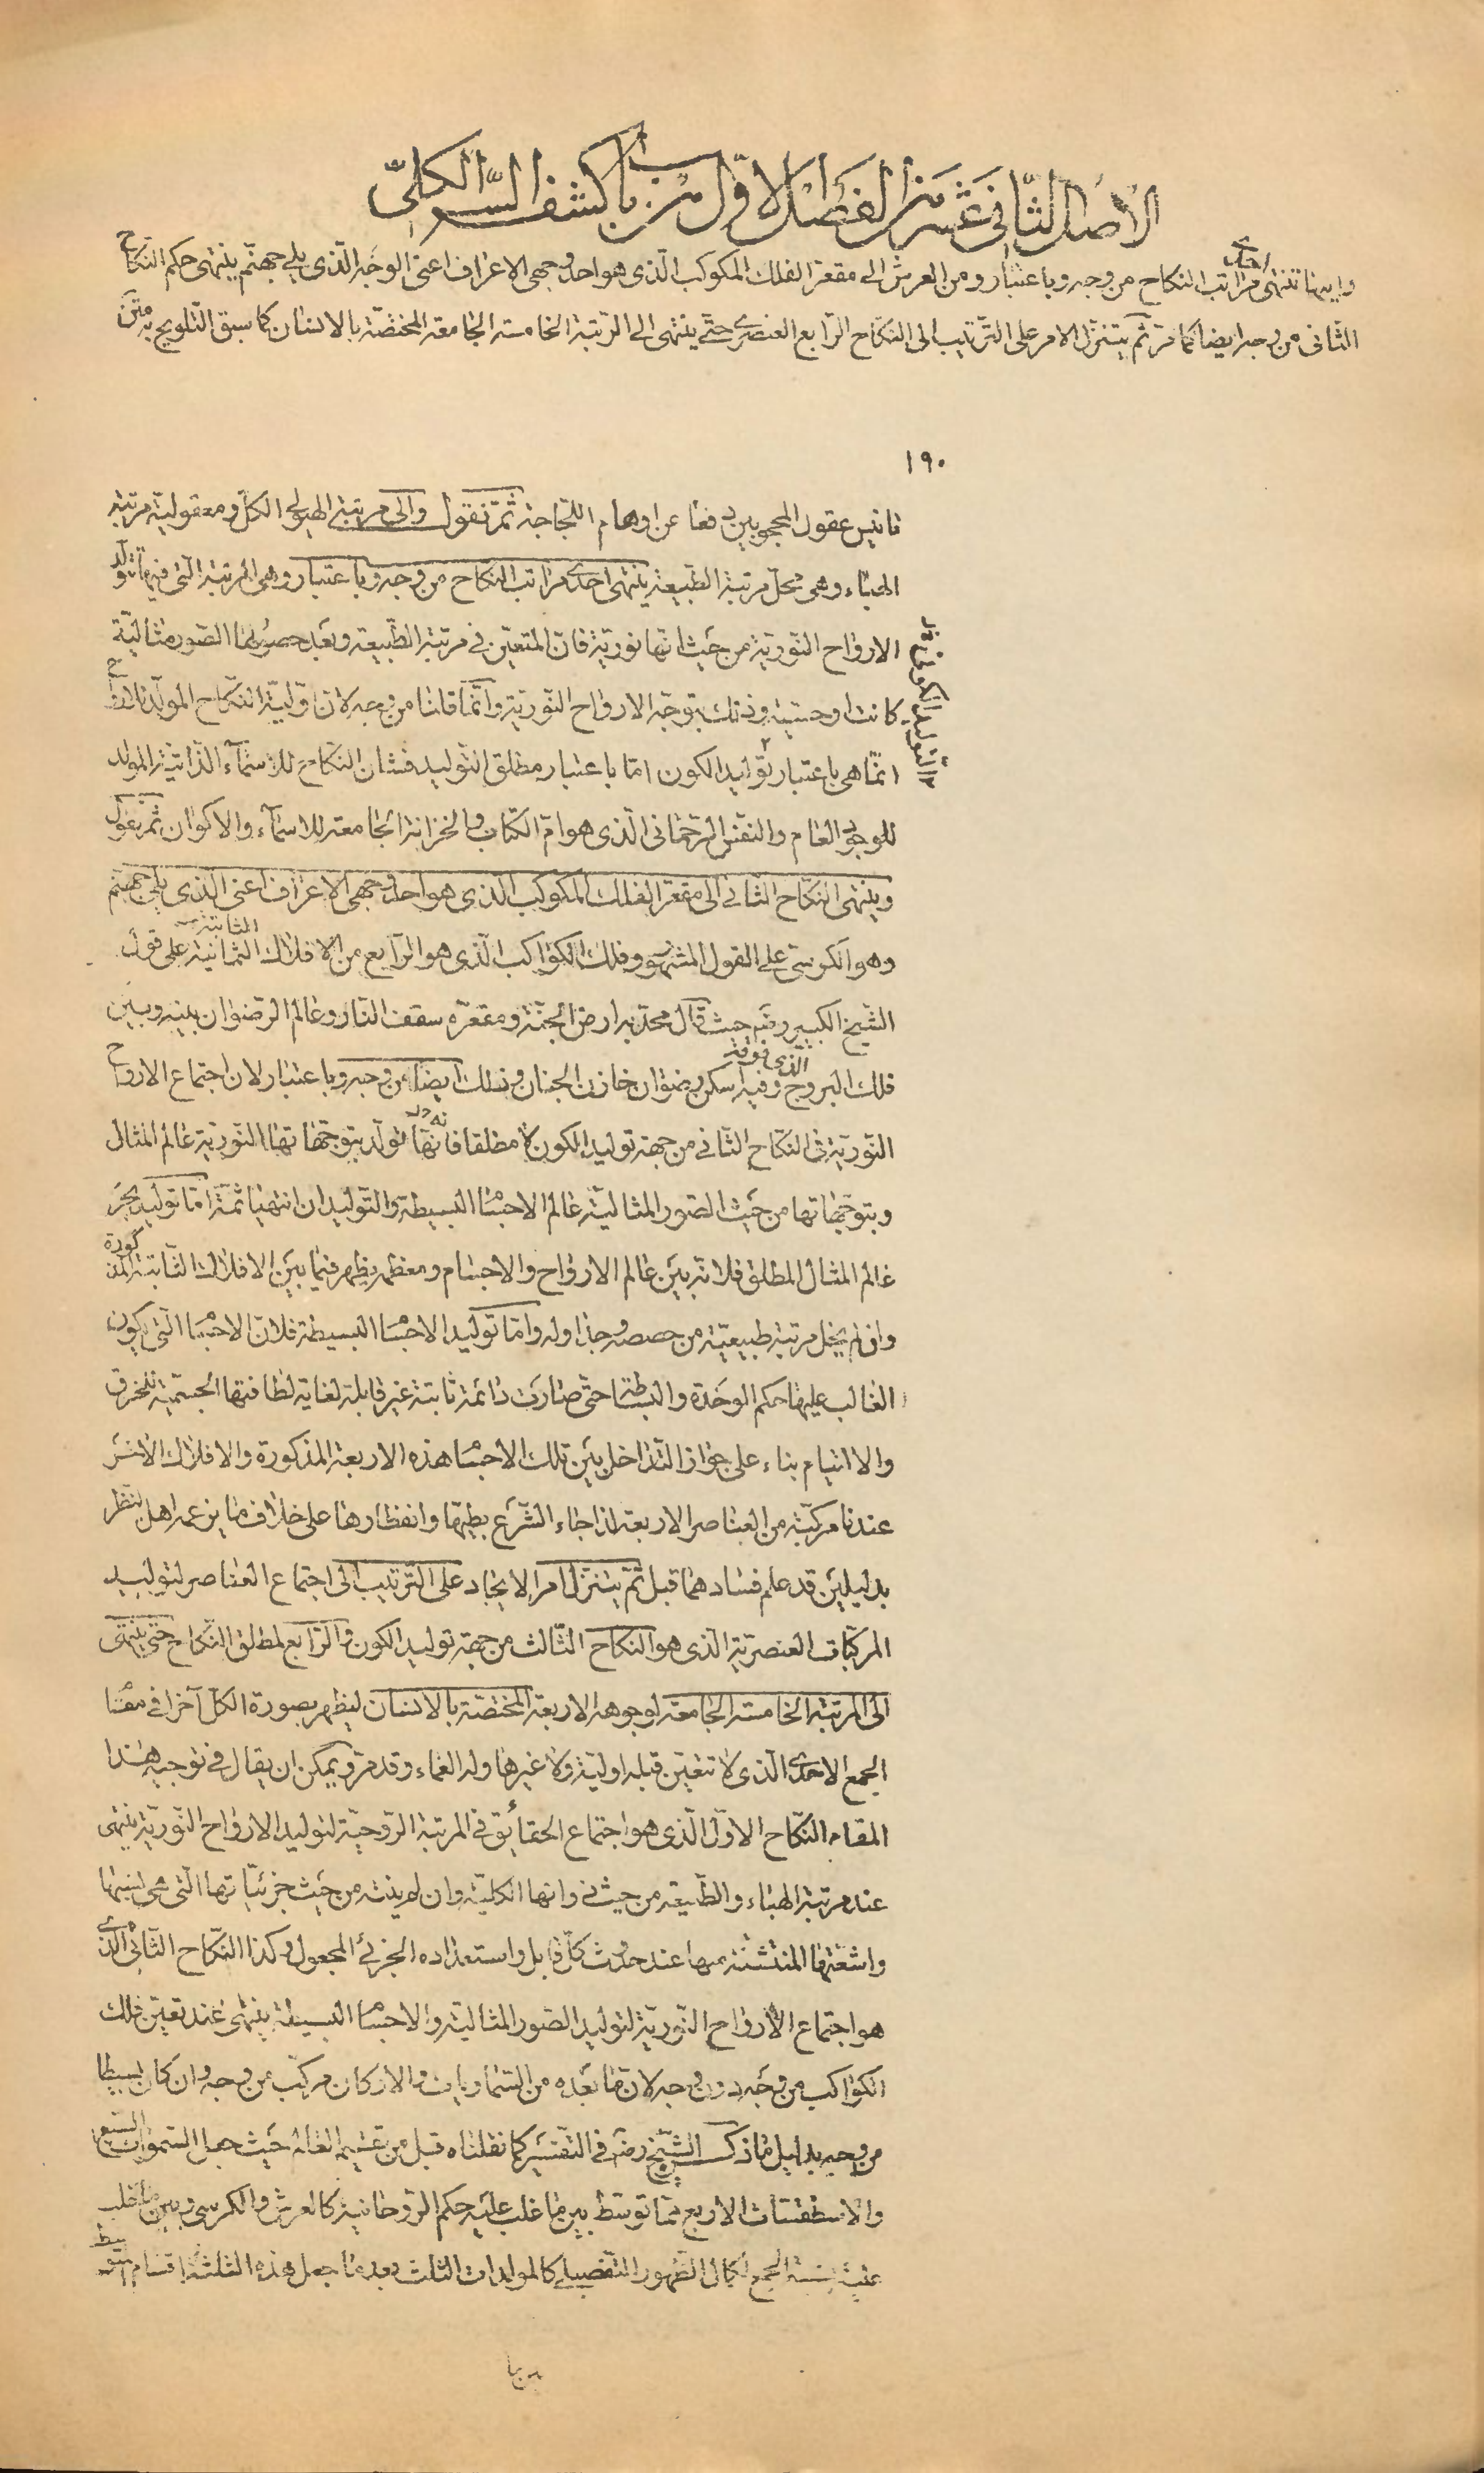 الأصل الثاني عشر من الفصل الاول من باب كشف السر الكلي
واليها تنتهى احدى مراتب النكاح من وجه وباعتبار ومن العرش الى مقعر الفلك المكوكب الذى هو احد وجهى الاعراف اعنى الوجه الذى يلى جهنم ينتهى حكم النكاح
الثانى من وجه ايضا كما مر ثم يتنزل الامر على الترتيب الى النكاح الرابع العنصرى حتى ينتهى الى المرتبة الخامسة الجامعة المختصة بالانسان كما سبق التلويح به متن
١٩٠
تانيس عقول المحجوبين دفعا عن اوهام اللجاجة ثم نقول والى مرتبة الهيولى الكل ومعقولية مرتبة
الهباء وهى محل مرتبة الطبيعة ينتهى احدى مراتب النكاح من وجه وباعتبار وهى المرتبة التى فيها تولد
الارواح النورية من حيث انها نورية فان المتعين فى مرتبة الطبيعة وبعد حصولها الصور مثالية
كانت او حسية وذلك بتوجه الارواح النورية وانما قلنا من وجه لان اولية النكاح المولد للارواح
انما هى باعتبار توليد الكون اما باعتبار مطلق التوليد فشان النكاح للاسماء الذاتية المولد
للوجود العام والنفس الرحمانى الذى هو ام الكتاب والخزانة الجامعة للاسماء والاكوان ثم نقول
وينتهى النكاح الثانى الى مقعر الفلك المكوكب الذى هو احد وجهى الاعراف اعنى الذى يلى جهنم
وهو الكرسى على القول المشهور وفلك الكواكب الذى هو الرابع من الافلاك الثمانية الثابتة على قول
الشيخ الكبير رضه حيث قال محدبه ارض الجنة ومقعره سقف النار وعالم الرضوان بينه وبين
فلك البروج الذى فوقه وفيه اسكن رضوان خازن الجنان وذلك ايضا من وجه وباعتبار لان اجتماع الارواح
النورية فى النكاح الثانى من جهة توليد الكون لا مطلقا فانها تولد بتوجهاتها النورية عالم المثال
وبتوجهاتها من حيث الصور المثالية عالم الاجسام البسيطة والتوليدان انتهيا ثمة اما توليد
عالم المثال المطلق فلانه بين عالم الارواح والاجسام ومعظمه يظهر فيما بين الافلاك الثابتة المذكورة
وان لم يخل مرتبة طبيعية من حصصه وجداوله واما توليد الاجسام البسيطة فلان الاجسام التى يكون
الغالب عليها حكم الوحدة والبساطة حتى صارت دائمة ثابتة غير قابلة لغاية لطافتها الجسمية للخرق
والالتيام بناء على جواز التداخل بين تلك الاجسام هذه الاربعة المذكورة والافلاك الاخر
عندنا مركبة من العناصر الاربعة لذا جاء الشرع بطيها وانفطارها على خلاف ما يزعمه اهل النظر
بدليلين قد علم فسادهما قبل ثم يتنزل امر الايجاد على الترتيب الى اجتماع العناصر لتوليد
المركبات العنصرية الذى هو النكاح الثالث من جهة توليد الكون والرابع لمطلق النكاح حتى ينتهى
الى المرتبة الخامسة الجامعة لوجوهه الاربعة المختصة بالانسان ليظهر بصورة الكل آخرا فى مقام
الجمع الاحدى الذى لا تتعين قبله اولية ولا غيرها وله العماء وقد مر ويمكن ان يقال فى توجيه هذا
المقام النكاح الاول الذى هو اجتماع الحقائق فى المرتبة الروحية لتوليد الارواح النورية ينتهى
عند مرتبة الهباء والطبيعة من حيث ذواتها الكلية وان لم ينته من حيث جزئياتها التى هى
واشعتها المنتشئة منها عند حدوث كل قابل واستعداده الجزئى المجعول وكذا النكاح الثانى الذى
هو اجتماع الارواح النورية لتوليد الصور المثالية والاجسام البسيطة ينتهى عند تعين فلك
الكواكب من وجه دون وجه لان ما بعده من السماويات والاركان مركب من وجه وان كان بسيطا
من وجه بدليل ما ذكر الشيخ رضه فى التفسير كما نقلناه قبل من تقسيم العالم حيث جعل السموات السبع
والاسطقسات الاربع مما توسط بين ما غلب عليه حكم الروحانية كالعرش والكرسى وبين ما غلب
عليه نسبة الجمع لكمال الظهور التفصيلى كالمولدات الثلث بعد ما جعل هذه الثلثة اقسام